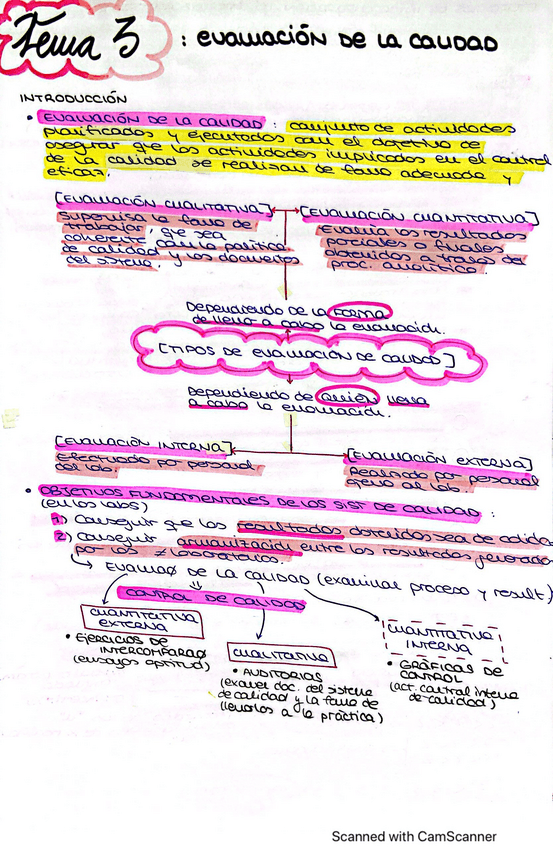 Tema 3 : EVALUACIÓN DE LA CALIDAD
INTRODUCCIÓN
• EVALUACIÓN DE LA CALIDAD : conjunto de actividades
planificados y ejecutados con el objetivo de
asegurar que las actividades implicados en el control
de la calidad se realizan de forma adecuada y
eficaz.
[EVALUACIÓN CUALITATIVA]
Supervisa la forma de
trabajar, que sea
coherente con la política
de calidad y los documentos
del sistema.
[EVALUACIÓN CUANTITATIVA]
Evalúa los resultados
parciales o finales
obtenidos a través del
proc. analítico.
Dependiendo de la FORMA
de llevar a cabo la evaluación.
[TIPOS DE EVALUACIÓN DE CALIDAD]
Dependiendo de QUIÉN lleva
a cabo la evaluación.
[EVALUACIÓN INTERNA]
Efectuada por personal
del lab.
[EVALUACIÓN EXTERNA]
Realizada por personal
ajeno al lab.
• OBJETIVOS FUNDAMENTALES DE LOS SIST DE CALIDAD :
(en los labs)
1) Conseguir que los resultados obtenidos sea de calidad
2) conseguir armonización entre los resultados generados
por los ≠ laboratorios.
↳ EVALUAC DE LA CALIDAD (examinar proceso y result)
CONTROL DE CALIDAD
CUANTITATIVA
EXTERNA
• EJERCICIOS DE
INTERCOMPARAC
(ensayos aptitud)
CUALITATIVA
• AUDITORIAS
(exáven doc. del sistema
de calidad y la forma de
llevarlos a la práctica)
CUANTITATIVA
INTERNA
• GRÁFICAS DE
CONTROL
(act. control interna
de calidad)
Scanned with CamScanner